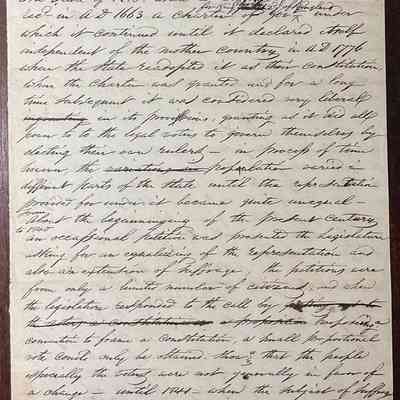 ced in A D 1663 a Charter of Gov under
which it continued until it declared itself
independent of the mother Country, in A D 1776
when the State readopted it as their Constitution
When the Charter was granted and for a long
time subsequent it was considered very liberal
in its provisions, granting as it did all
power to to the legal voters to govern themselves by
electing their own rulers — in process of time
however, the variations in population varied in
different parts of the State until the representation
provided for under it became quite unequal —
About the beginninging of the present Century,
to 1840
an occasional petition was presented the Legislature
asking for an equalizing of the representation and
also an extention of suffrage, the petitions were
from only a limited number of citizens, and when
the legislature responded to the call by
the a Constitution a proportion
convention to frame a Constitution, a small proportional
vote could only be obtained that the people
especially the voters were not generally in favor of
a change — until 1841 — when the subject of suffrag